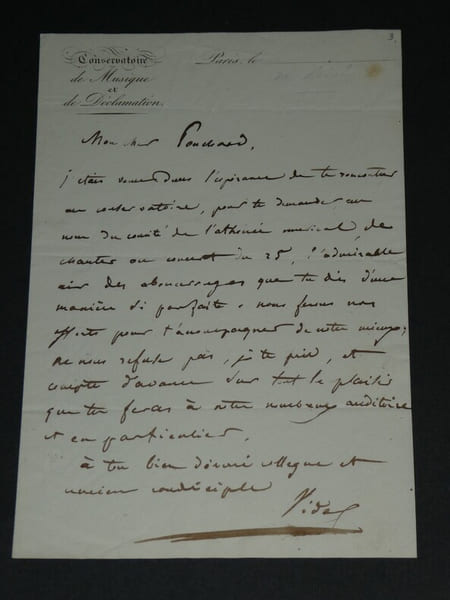 3.
Conservatoire
de Musique
et
de Déclamation.
Paris, le
Mon cher Ponchard,
j'étais venu dans l'espérance de te rencontrer
au conservatoire, pour te demander au
nom du comité de l'athénée musical, de
chanter au concert du 25, l'admirable
air des abencerages que tu dis d'une
manière si parfaite. nous ferons nos
efforts pour t'accompagner de notre mieux;
ne nous refuse pas, je te prie, et
compte d'avance sur tout le plaisir
que tu feras à notre nombreux auditoire
et en particulier,
à ton bien dévoué collegue et
ancien condisciple
Vidal